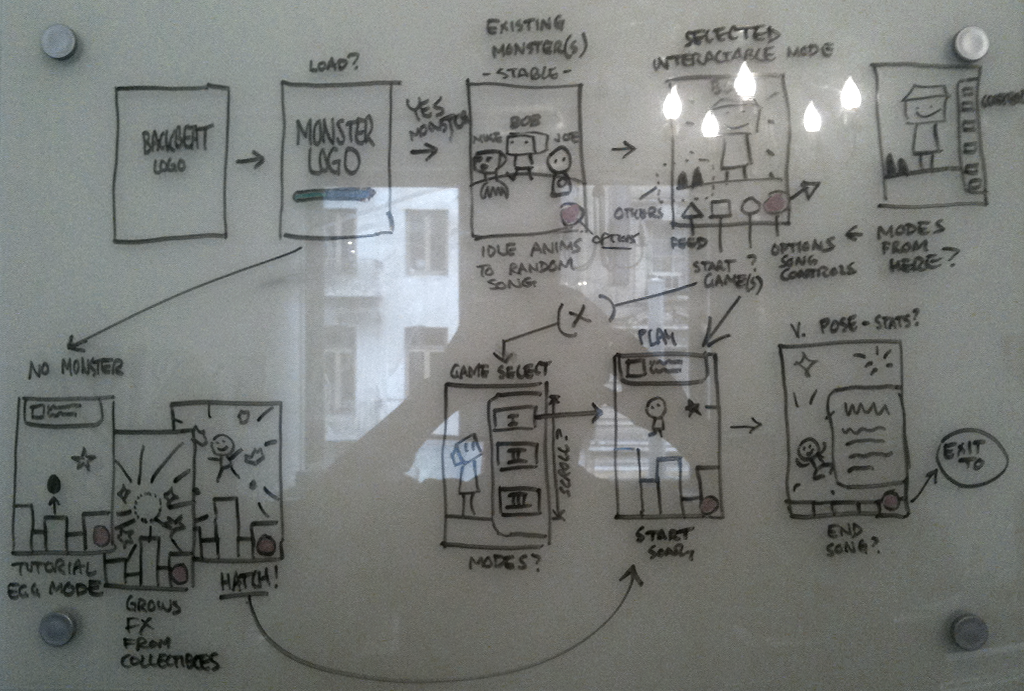 BACKBEAT
LOGO
LOAD?
MONSTER
LOGO
YES
MONSTER
EXISTING
MONSTER(S)
- STABLE -
MIKE
BOB
JOE
OPTIONS
IDLE ANIMS
TO RANDOM
SONG
SELECTED
INTERACTABLE MODE
OTHERS
FEED
START
GAME(S)
?
OPTIONS
SONG
CONTROLS
MODES
FROM
HERE?
NO MONSTER
TUTORIAL
EGG MODE
GROWS
FX
FROM
COLLECTIBLES
HATCH!
(X)
GAME SELECT
I
II
III
SCROLL?
MODES?
PLAY
START
SONG
V. POSE - STATS?
END
SONG?
EXIT
TO